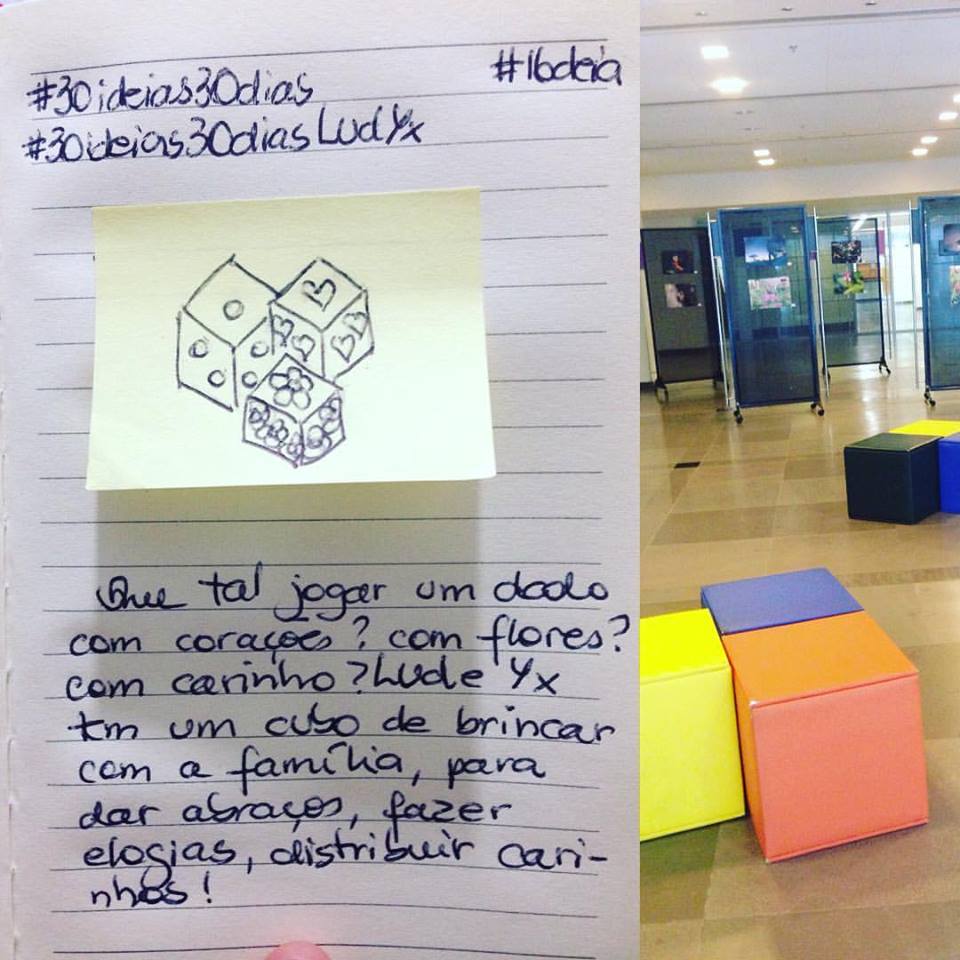 #30ideias30dias
#16deia
#30ideias30diasLudYx
Que tal jogar um dado
com corações? com flores?
com carinho? Lude Yx
tm um cubo de brincar
com a família, para
dar abraços, fazer
elogias, distribuir cari-
nhos!